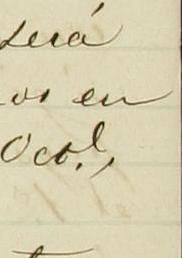 será
os en
Occl.,